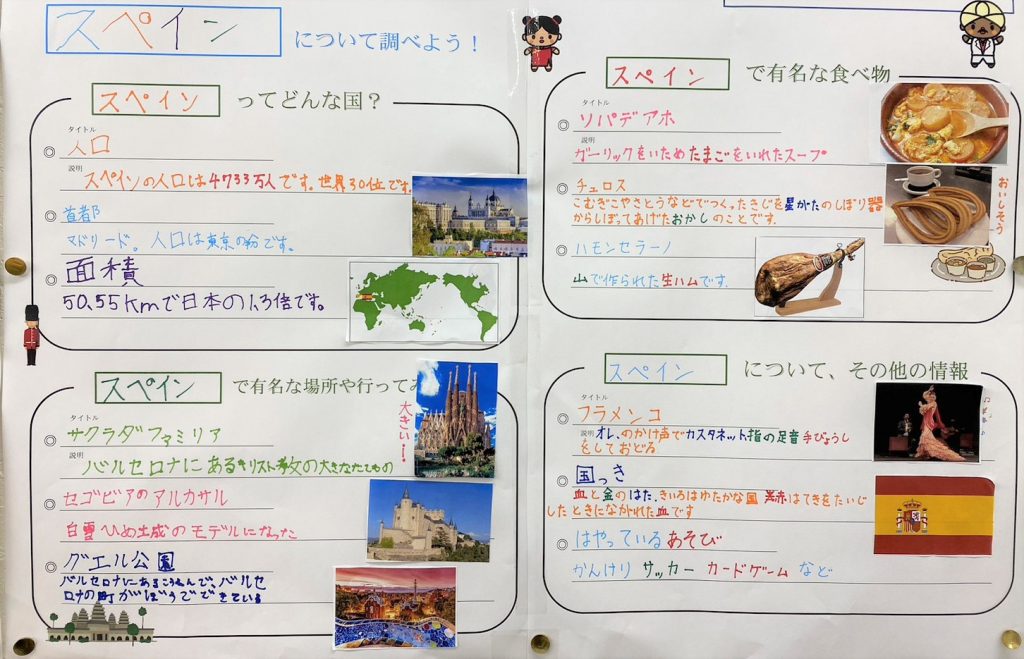 スペイン について調べよう！
スペイン ってどんな国？
タイトル
人口
説明
スペインの人口は4733万人です。世界30位です。
首都
マドリード。人口は東京の約です。
面積
50.55kmで日本の1.3倍です。
スペイン で有名な場所や行ってみ
タイトル
サクラダファミリア
大きいー！
説明
バルセロナにあるキリスト教の大きなたてもの
セゴビアのアルカサル
白雪ひめ土成のモデルになった
グエル公園
バルセロナにあるこうえんで、バルセ
ロナの町がぼうでできている
スペイン で有名な食べ物
タイトル
ソパデアホ
説明
ガーリックをいためたまごをいれたスープ
チュロス
こむぎこやさとうなどでつく。たきじを星がたのしぼり器
からしぼってあげたおかしのことです。
おいしそう
ハモンセラーノ
山で作られた生ハムです。
スペイン について、その他の情報
タイトル
フラメンコ
説明
オレ、のかけ声でカスタネット、指の足音手びょうし
をしておどる
国っき
血と金のはた、きいろはゆたかな国 赤はてきをたいじ
したときにながれた血です
はやっているあそび
かんけり サッカー カードゲーム など